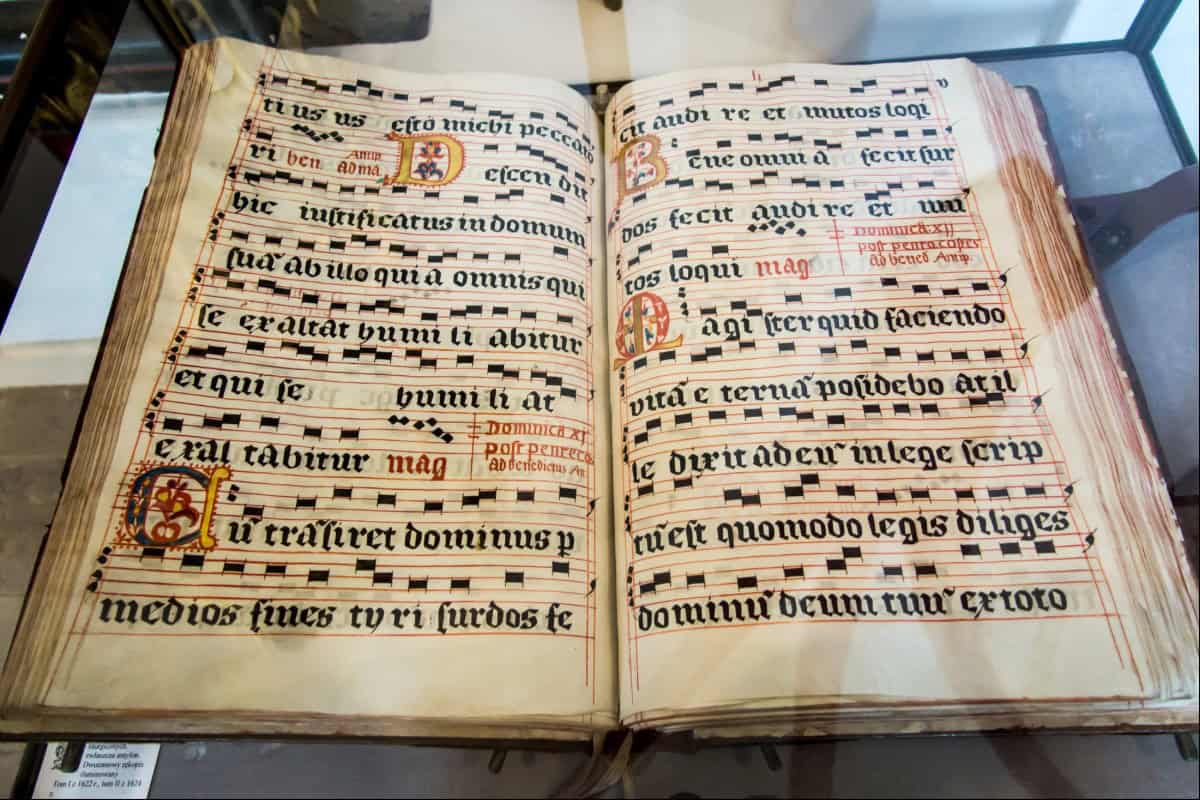 ti us us esto michi peccato
ri ben Anip
ad ma. Descen dit
hic iustificatus in domum
suā ab illo qui a omnis qui
se exaltat humi li abitur
et qui se humi li at
exal tabitur mag Dominica XI
post penteco
Ad benedictus An
Cū trāsiret dominus p
medios fines ty ri surdos fe
v
cit audi re et mutos loqi
Bene omni a fecit sur
dos fecit audi re et mu
tos loqui mag Dominica XII
post pentecostes
ad bened Anip.
Magi ster quid faciendo
vitā e ternā posidebo at il
le dixit ad eū in lege scrip
tū est quomodo legis diliges
dominū deum tuū ex toto
zwłaszcza antyfon.
Dwutomowy rękopis
iluminowany
Tom I z 1622 r., tom II z 1624